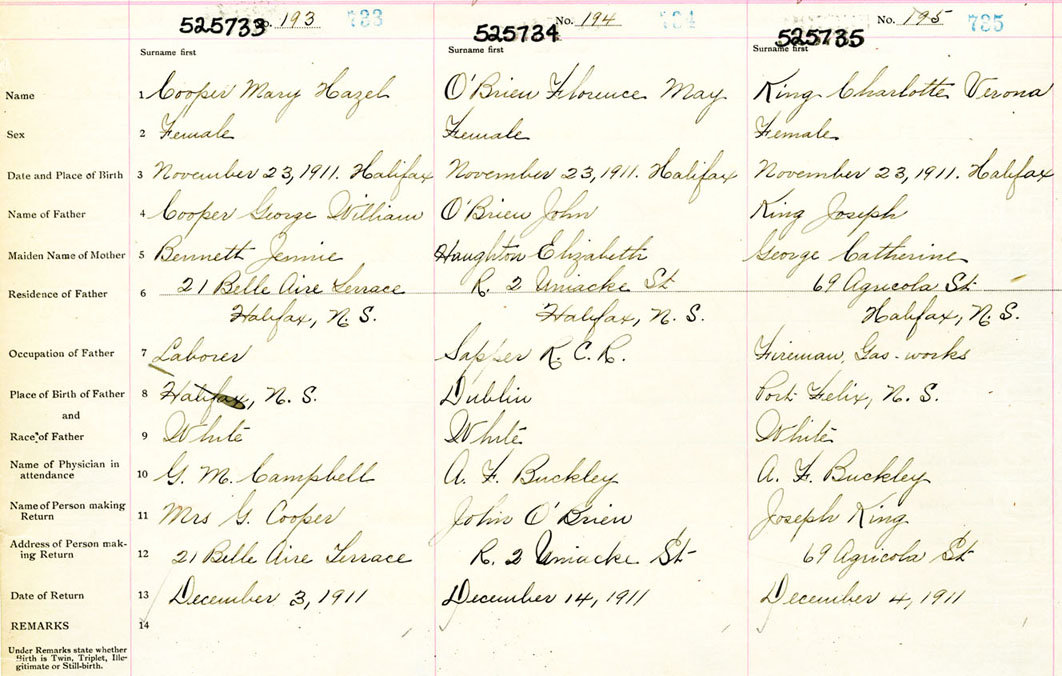 525733 No. 193 733 525734 No. 194 734 525735 No. 195 735
Surname first Surname first Surname first
Name 1 Cooper Mary Hazel O'Brien Florence May King Charlotte Verona
Sex 2 Female Female Female
Date and Place of Birth 3 November 23, 1911. Halifax November 23, 1911. Halifax November 23, 1911. Halifax
Name of Father 4 Cooper George William O'Brien John King Joseph
Maiden Name of Mother 5 Bennett Jennie Haughton Elizabeth George Catherine
Residence of Father 6 21 Belle Aire Terrace R. 2 Uniacke St 69 Agricola St
Halifax, N. S. Halifax, N. S. Halifax, N. S.
Occupation of Father 7 Laborer Sapper R. C. R. Fireman, Gas-works
Place of Birth of Father 8 Halifax, N. S. Dublin Port Felix, N. S.
and
Race of Father 9 White White White
Name of Physician in
attendance 10 G. M. Campbell A. F. Buckley A. F. Buckley
Name of Person making
Return 11 Mrs G. Cooper John O'Brien Joseph King
Address of Person mak-
ing Return 12 21 Belle Aire Terrace R. 2 Uniacke St 69 Agricola St
Date of Return 13 December 3, 1911 December 14, 1911 December 4, 1911
REMARKS 14
Under Remarks state whether
Birth is Twin, Triplet, Ille-
gitimate or Still-birth.